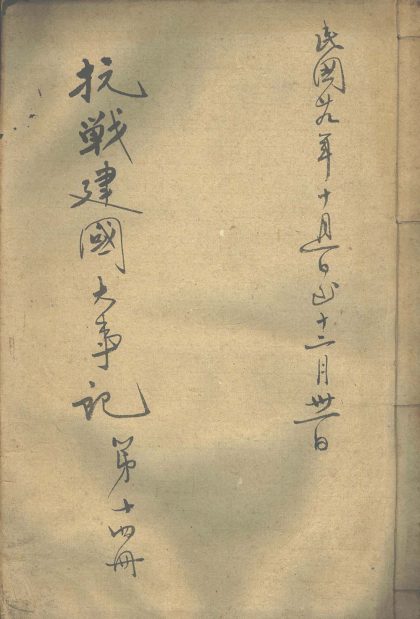 民國廿九年十月一日止十二月卅一日
抗戦建國大事記 第十四冊